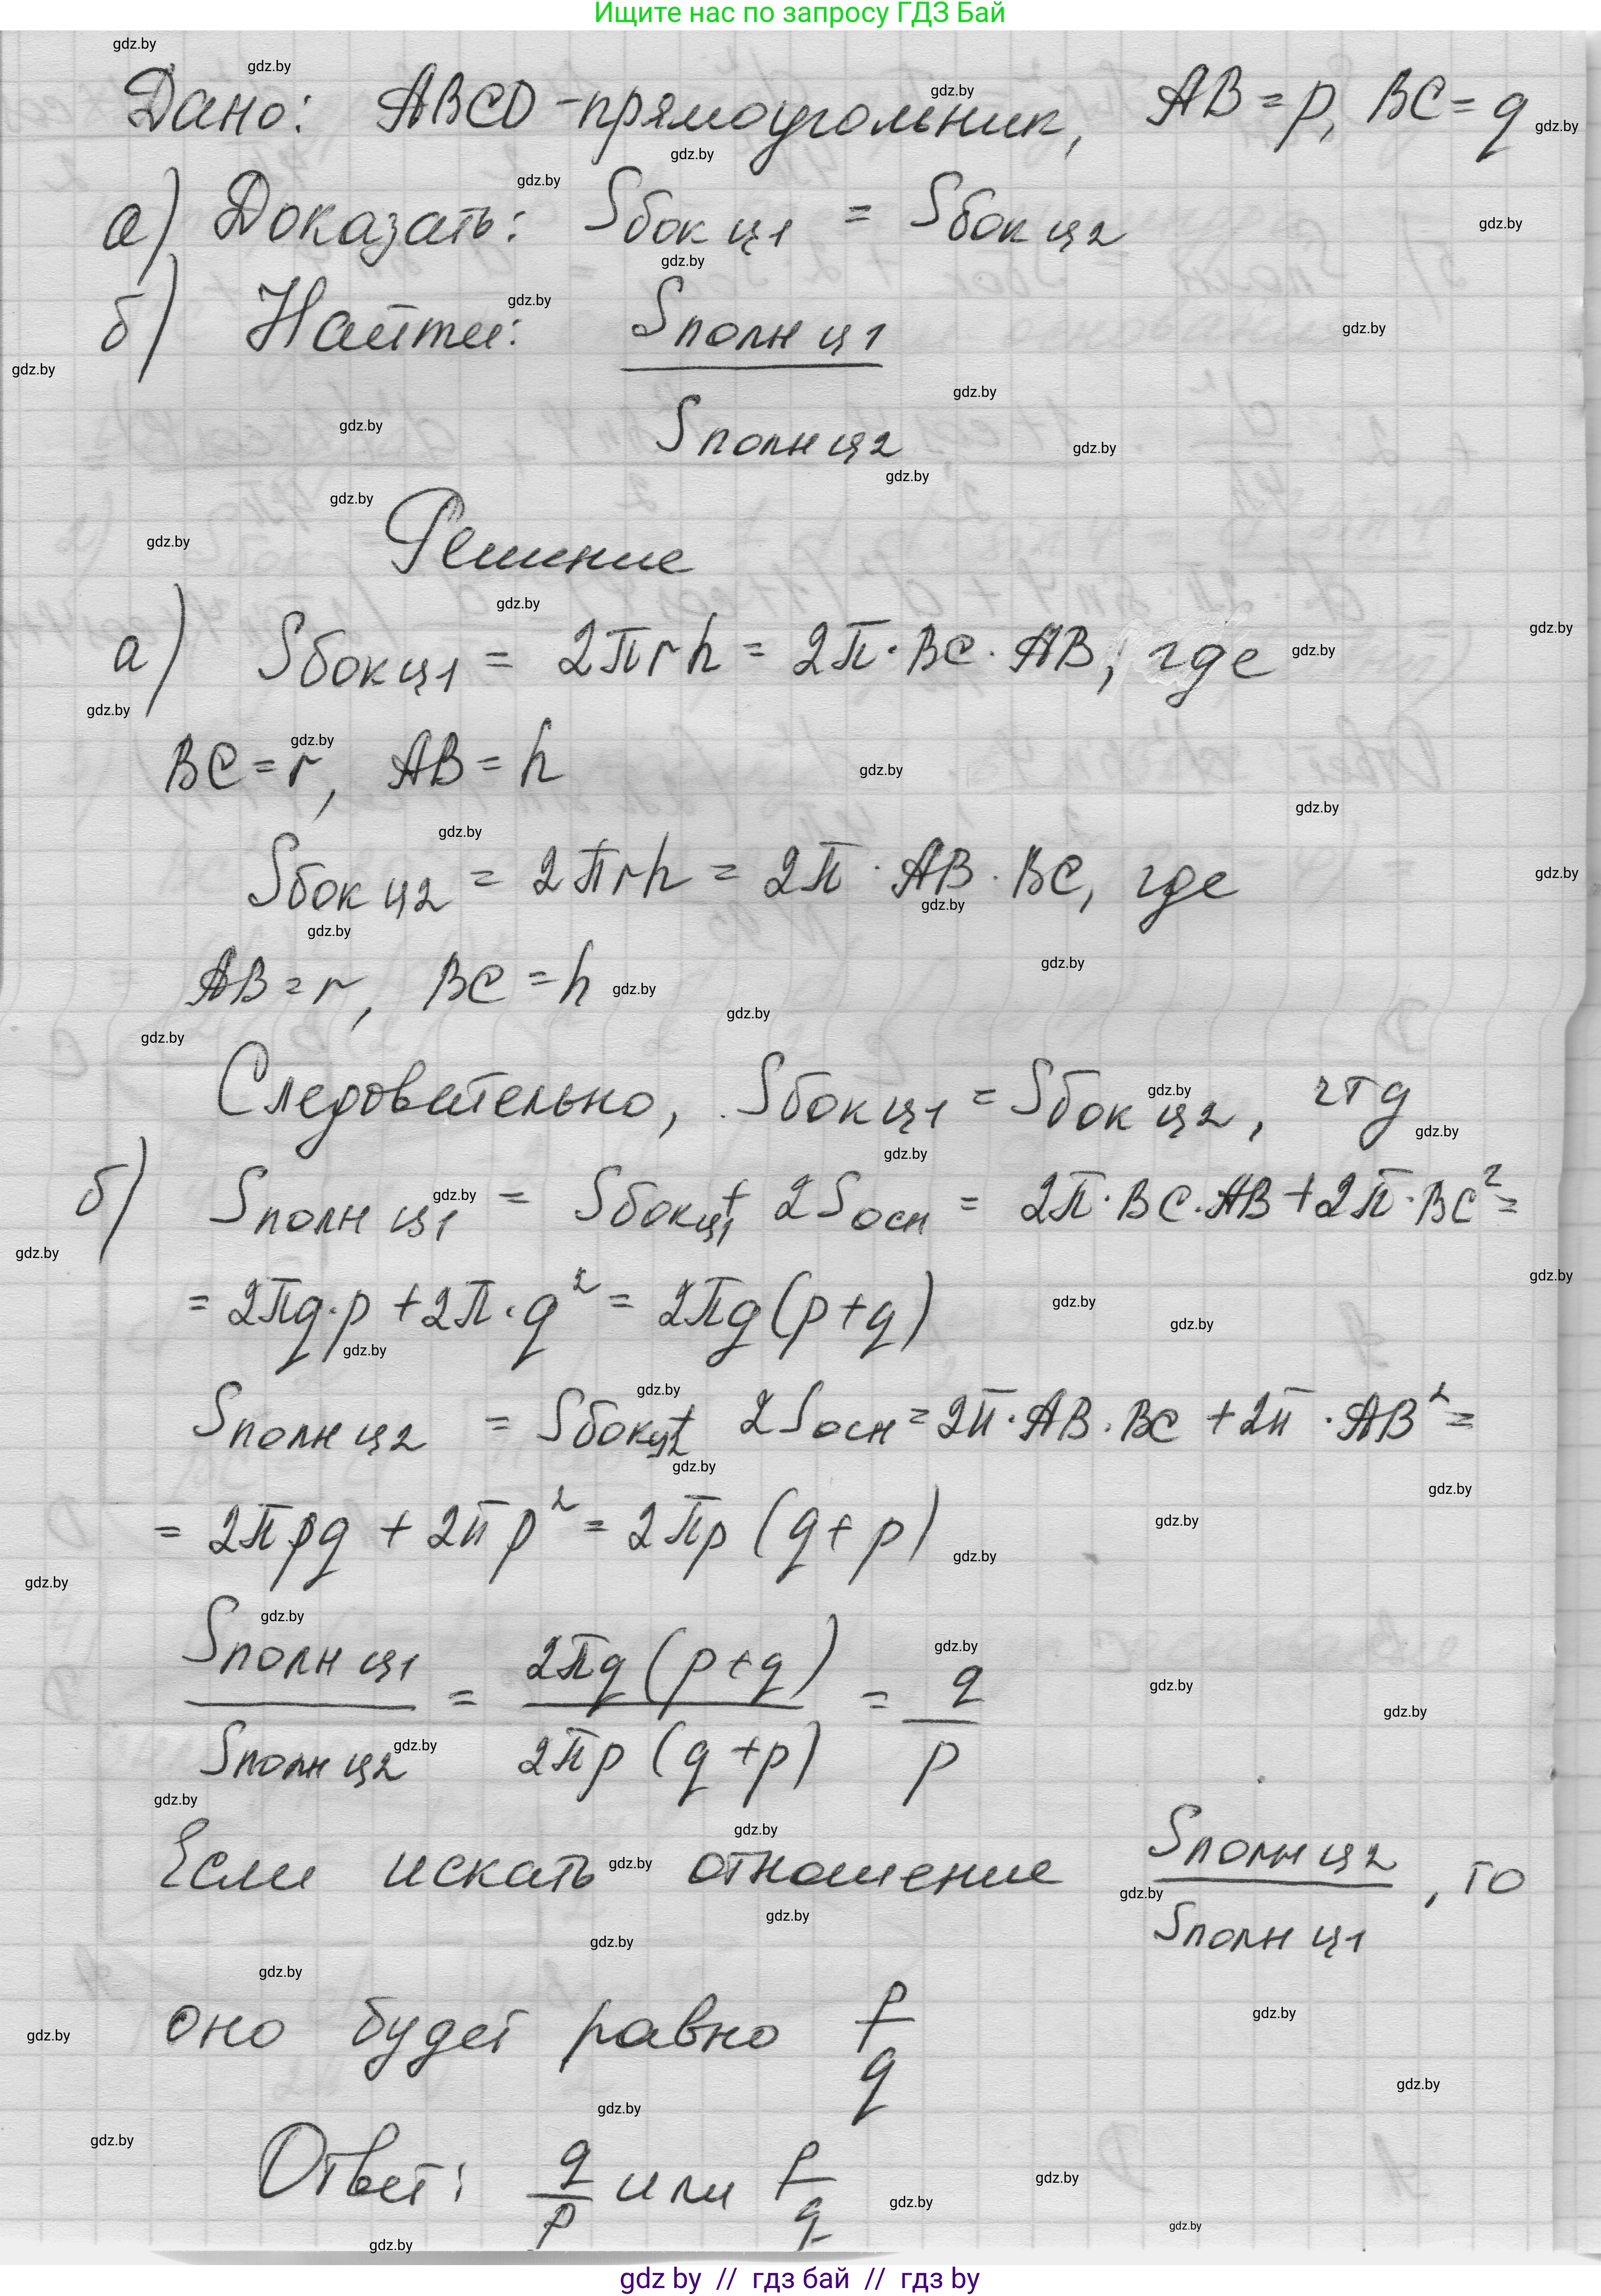 Ищите нас по запросу ГДЗ Бай
Дано: ABCD - прямоугольник, AB = p, BC = q
а) Доказать: Sбок ц1 = Sбок ц2
б) Найти: Sполн ц1
Sполн ц2
Решение
а) Sбок ц1 = 2πrh = 2π · BC · AB, где
BC = r, AB = h
Sбок ц2 = 2πrh = 2π · AB · BC, где
AB = r, BC = h
Следовательно, Sбок ц1 = Sбок ц2, чтд
б) Sполн ц1 = Sбок ц1 + 2Sосн = 2π · BC · AB + 2π · BC² =
= 2πq · p + 2π · q² = 2πq (p + q)
Sполн ц2 = Sбок ц2 + 2Sосн = 2π · AB · BC + 2π · AB² =
= 2πpq + 2πp² = 2πp (q + p)
Sполн ц1 / Sполн ц2 = 2πq (p + q) / 2πp (q + p) = q / p
Если искать отношение Sполн ц2 / Sполн ц1, то
оно будет равно p / q
Ответ: q / p или p / q
gdz by // гдз бай // гдз by